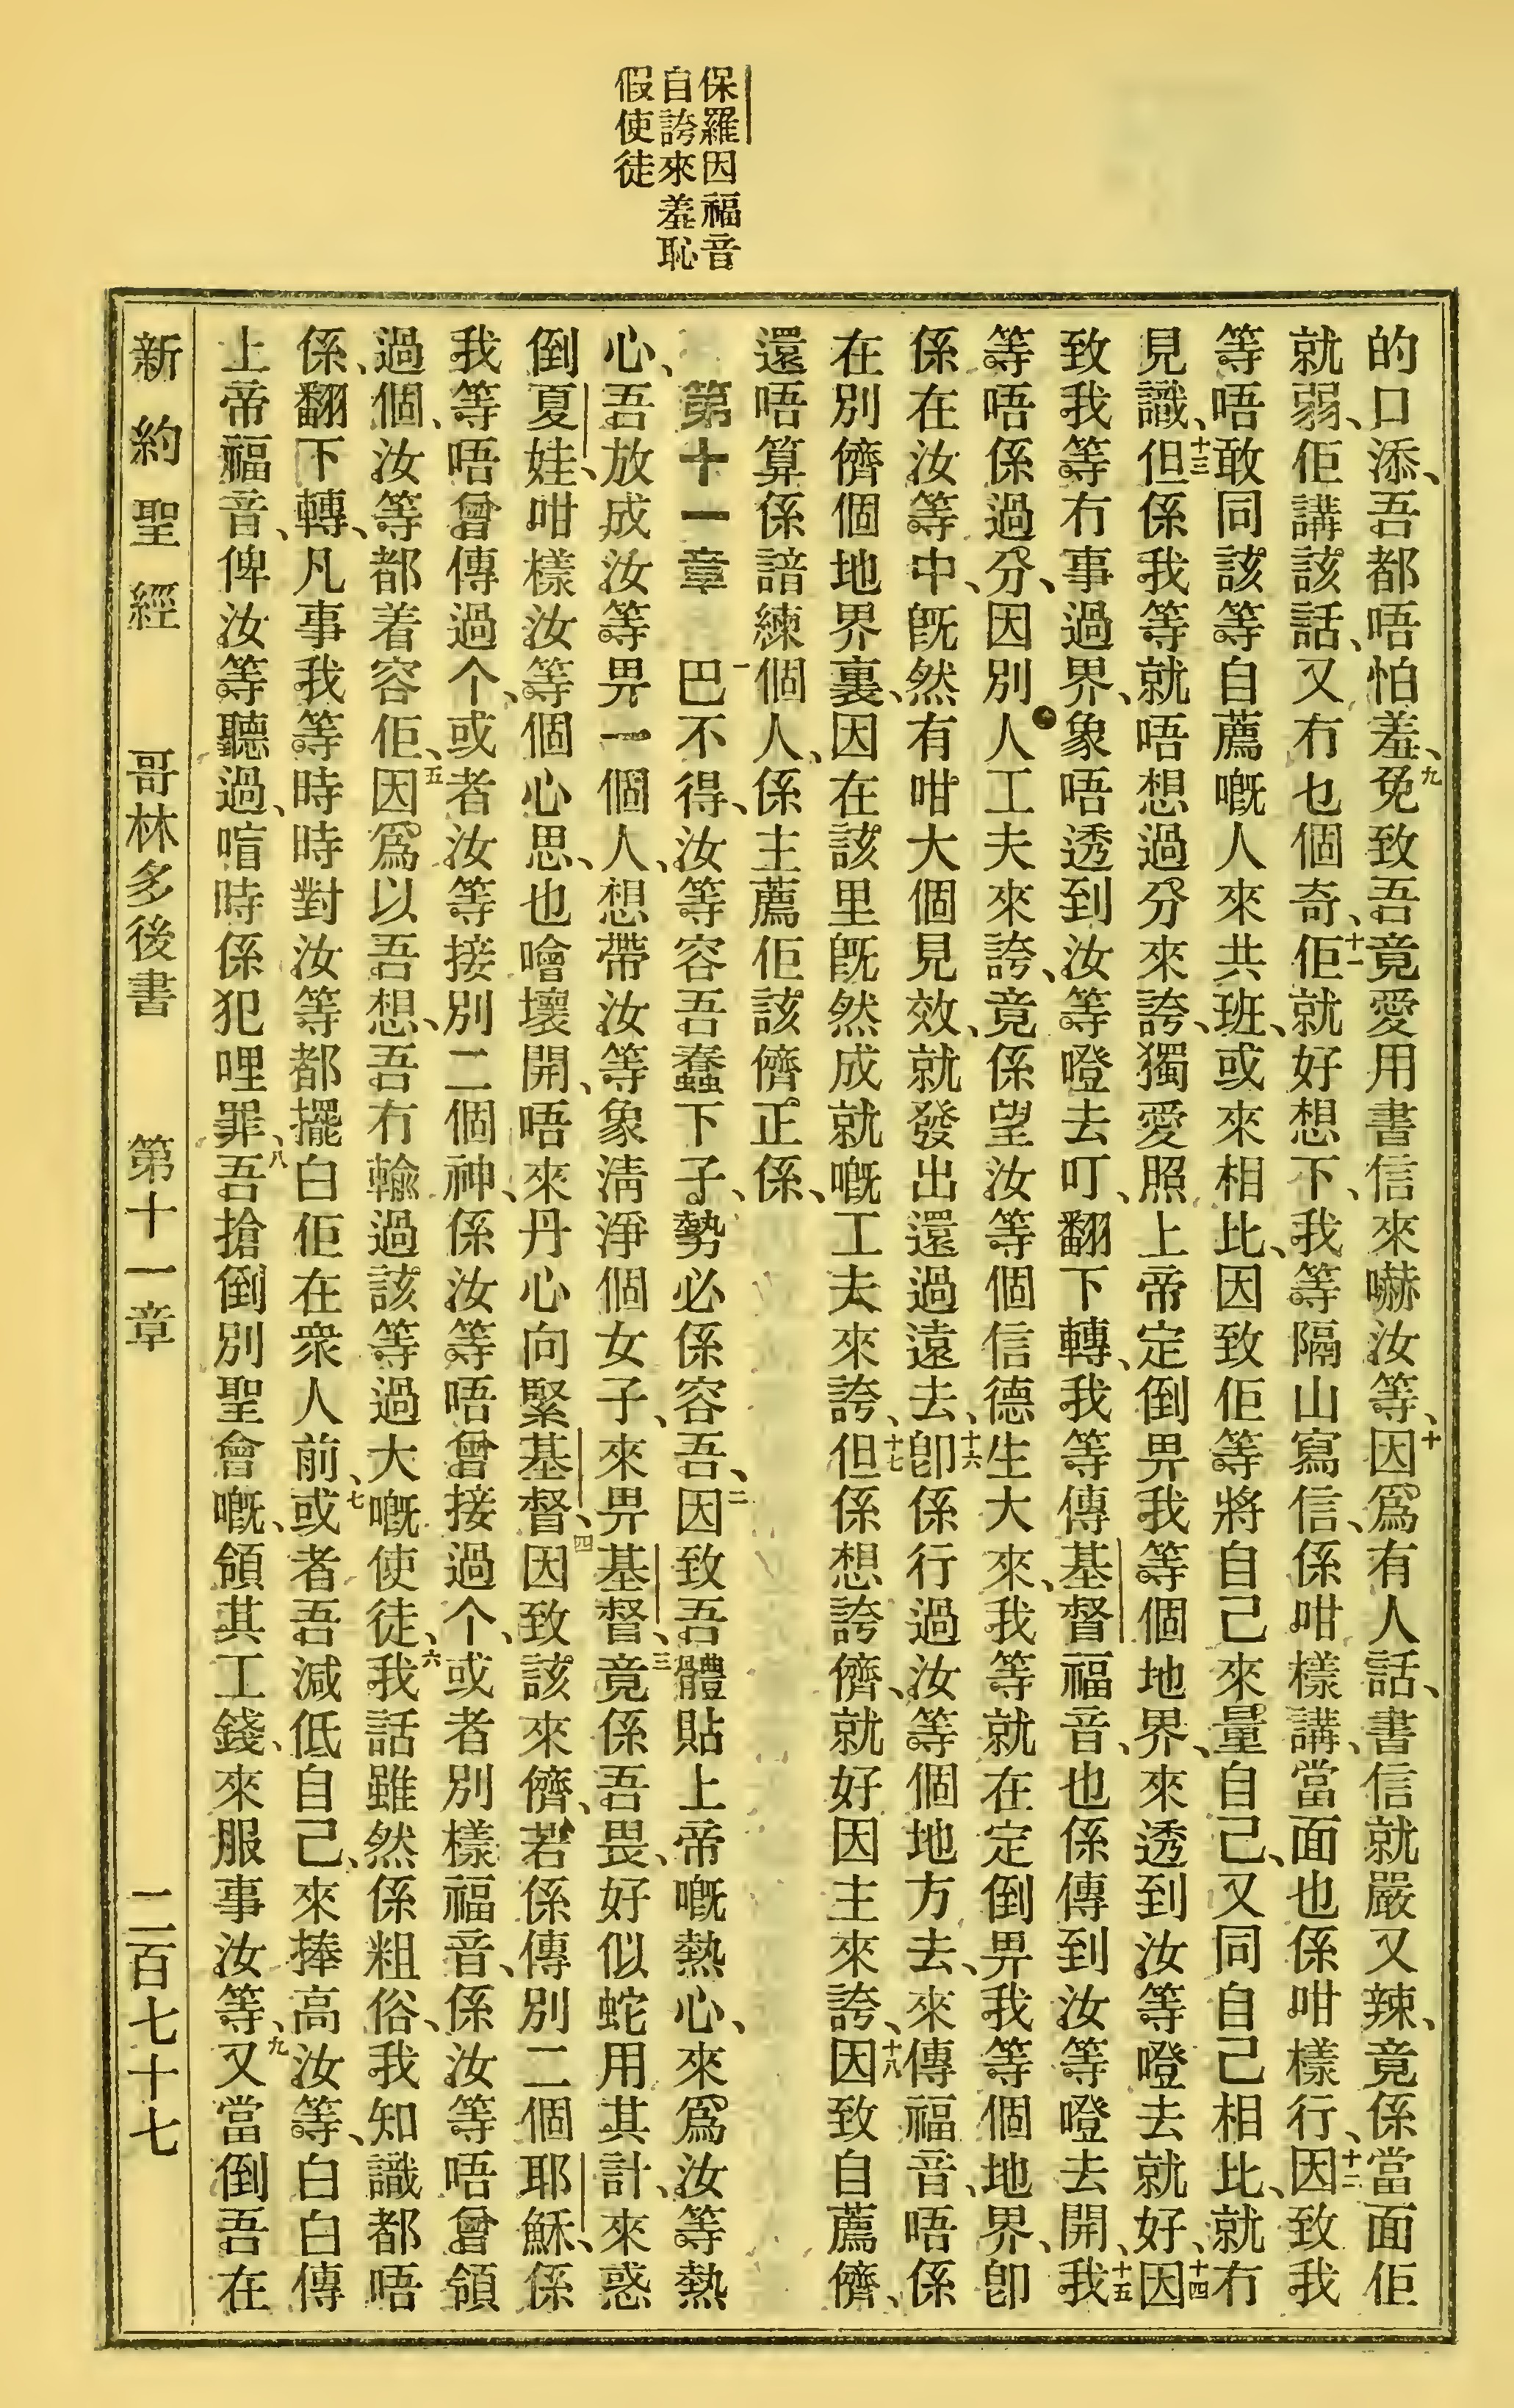 保羅因福音
自誇來羞恥
假使徒
的口添、吾都唔怕羞、九免致吾竟愛用書信來嚇汝等、十因爲有人話、書信就嚴又辣、竟係當面佢
就弱、佢講該話、又冇乜個奇、十一佢就好想下、我等隔山寫信、係咁樣講、當面也係咁樣行、十二因致我
等唔敢同該等自薦嘅人來共班、或來相比、因致佢等將自己來量自己、又同自己相比、就冇
見識、十三但係我等就唔想過分來誇、獨愛照上帝定倒畀我等個地界、來透到汝等嶝去就好、十四因
致我等冇事過界、象唔透到汝等嶝去叮、翻下轉、我等傳基督福音、也係傳到汝等嶝去開、十五我
等唔係過分、因別人工夫來誇、竟係望汝等個信德生大來、我等就在定倒畀我等個地界、卽
係在汝等中、旣然有咁大個見效、就發出還過遠去、十六卽係行過汝等個地方去、來傳福音、唔係
在別儕個地界裏、因在該里旣然成就嘅工夫來誇、十七但係想誇儕、就好因主來誇、十八因致自薦儕、
還唔算係諳練個人、係主薦佢該儕正係、
第十一章　一巴不得、汝等容吾蠢下子、勢必係容吾、二因致吾體貼上帝嘅熱心、來爲汝等熱
心、吾放成汝等畀一個人、想帶汝等象淸淨個女子、來畀基督、三竟係吾畏、好似蛇用其計、來惑
倒夏娃、咁樣汝等個心思、也噲壞開、唔來丹心向緊基督、四因致該來儕、若係傳別二個耶穌、係
我等唔曾傳過个、或者汝等接別二個神、係汝等唔曾接過个、或者別樣福音、係汝等唔曾領
過個、汝等都着容佢、五因爲以吾想、吾冇輸過該等過大嘅使徒、六我話雖然係粗俗、我知識都唔
係、翻下轉、凡事我等時時對汝等都擺白佢在衆人前、七或者吾減低自己、來捧高汝等、白白傳
上帝福音、俾汝等聽過、唷時係犯哩罪、八吾搶倒別聖會嘅、領其工錢、來服事汝等、九又當倒吾在
新約聖經　哥林多後書　第十一章　二百七十七